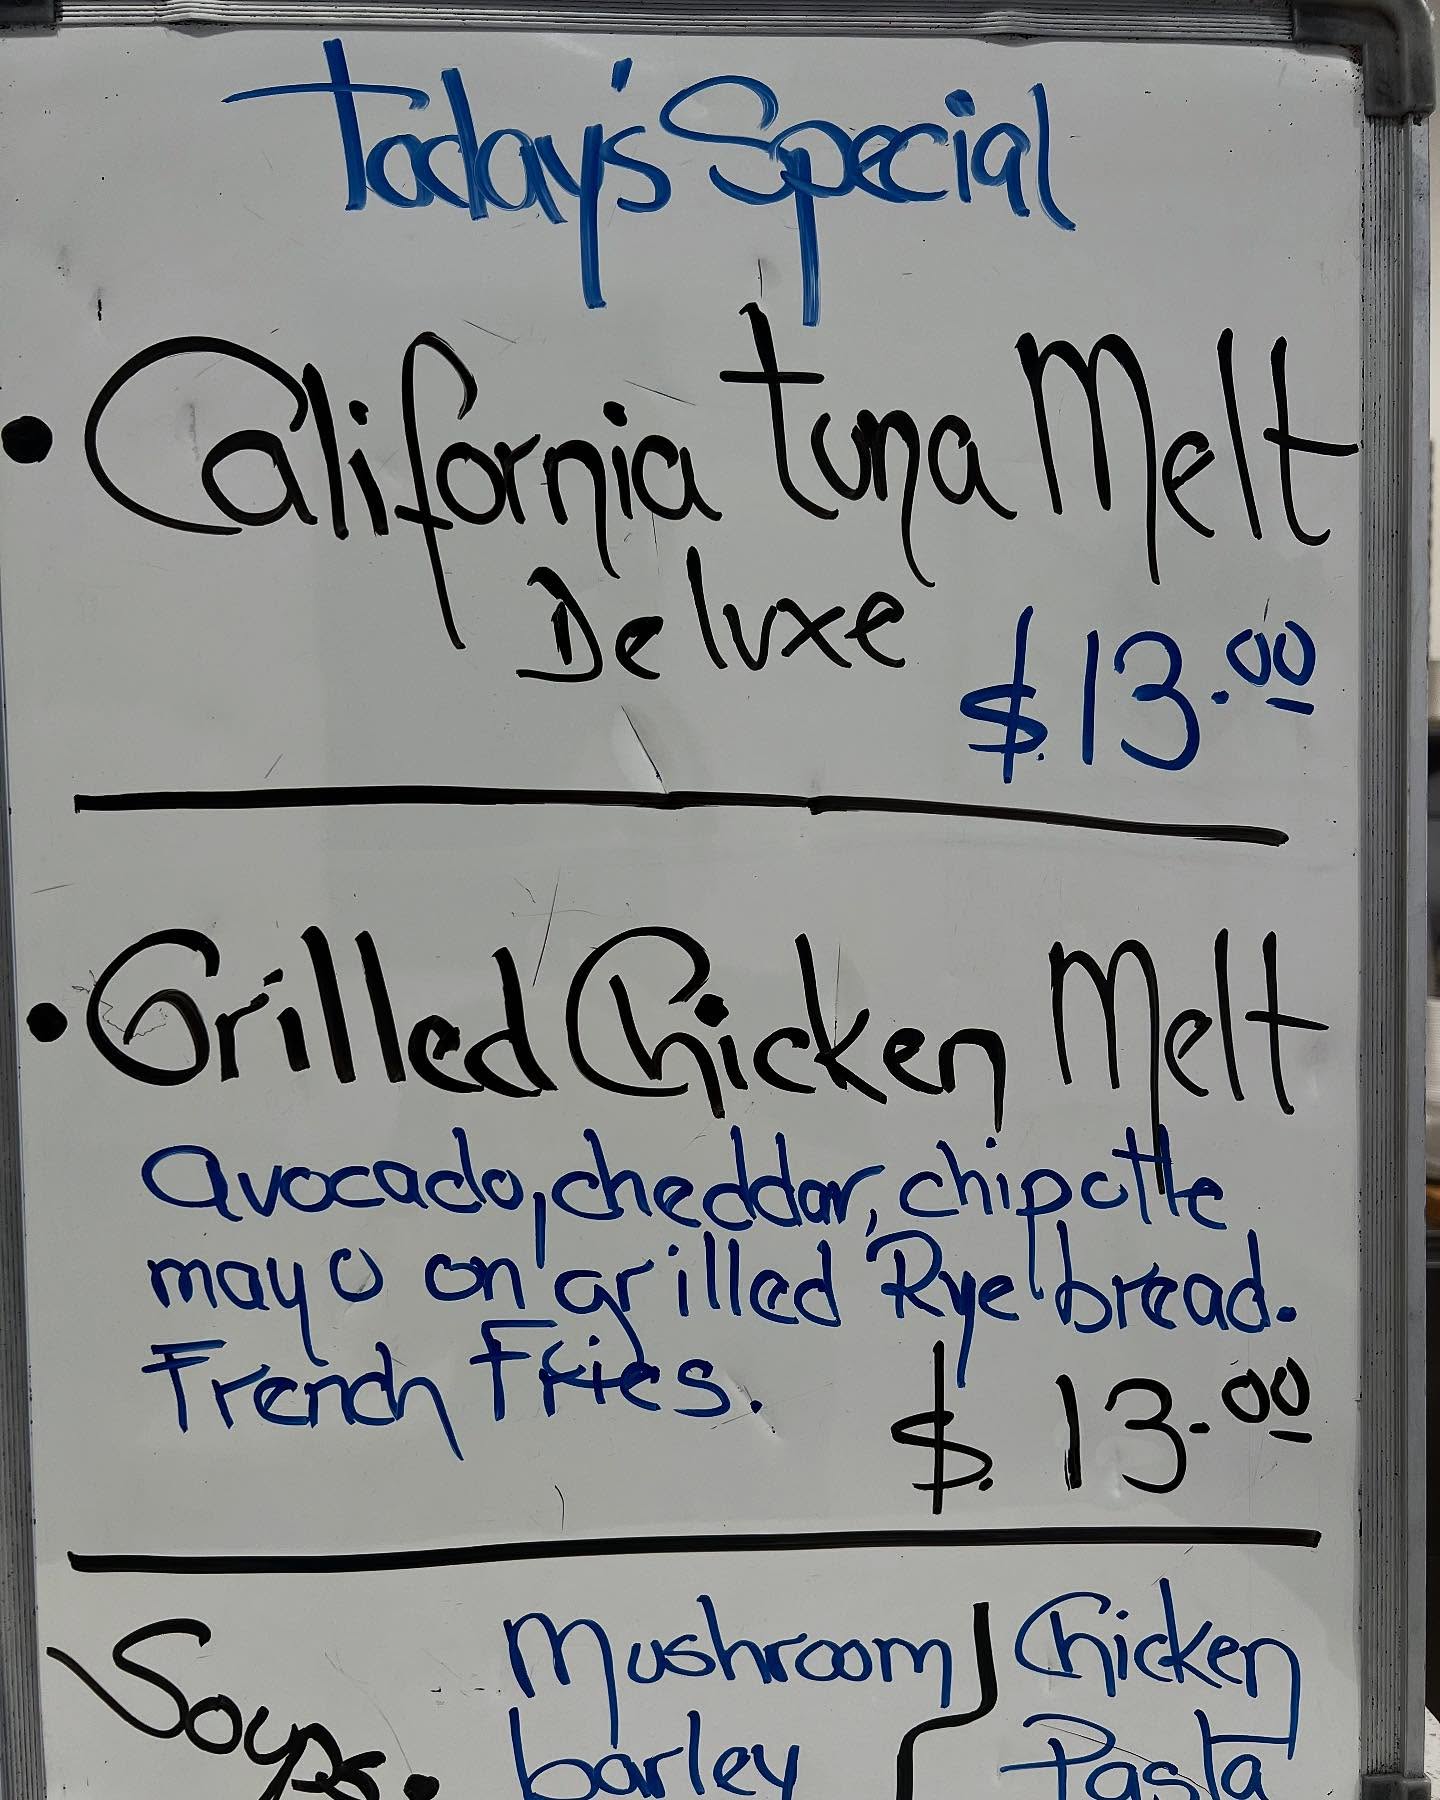 Today's Special
• California Tuna Melt
Deluxe
$13.00
• Grilled Chicken Melt
avocado, cheddar, chipotle
mayo on grilled Rye bread.
French Fries.
$. 13.00
Soups. Mushroom barley / Chicken Pasta